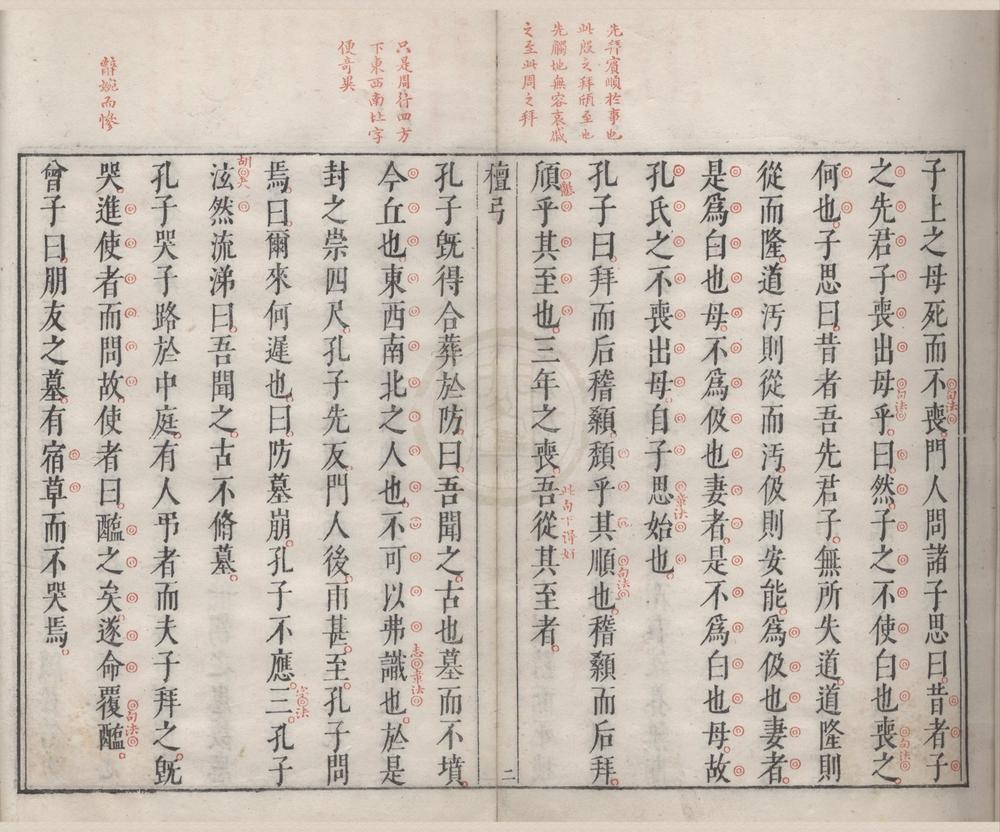 先拜賓順於事也
此殷之拜頎至也
先觸地無容哀戚
之至此周之拜
子上之母死而不喪門人問諸子思曰昔者子
句法
之先君子喪出母乎曰然子之不使白也喪之
句法
句法
何也子思曰昔者吾先君子無所失道道隆則
從而隆道汚則從而汚伋則安能爲伋也妻者
是爲白也母不爲伋也妻者是不爲白也母故
孔氏之不喪出母自子思始也
章法
孔子曰拜而后稽顙頽乎其順也稽顙而后拜
句法
頎乎其至也三年之喪吾從其至者
懇
此句下得好
檀弓
二
只是周行四方
下東西南北字
便奇異
孔子旣得合葬於防曰吾聞之古也墓而不墳
今丘也東西南北之人也不可以弗識也於是
志
章法
封之崇四尺孔子先反門人後雨甚至孔子問
焉曰爾來何遲也曰防墓崩孔子不應三孔子
字法
泫然流涕曰吾聞之古不脩墓
胡犬
辭婉而慘
孔子哭子路於中庭有人弔者而夫子拜之旣
哭進使者而問故使者曰醢之矣遂命覆醢
句法
曾子曰朋友之墓有宿草而不哭焉